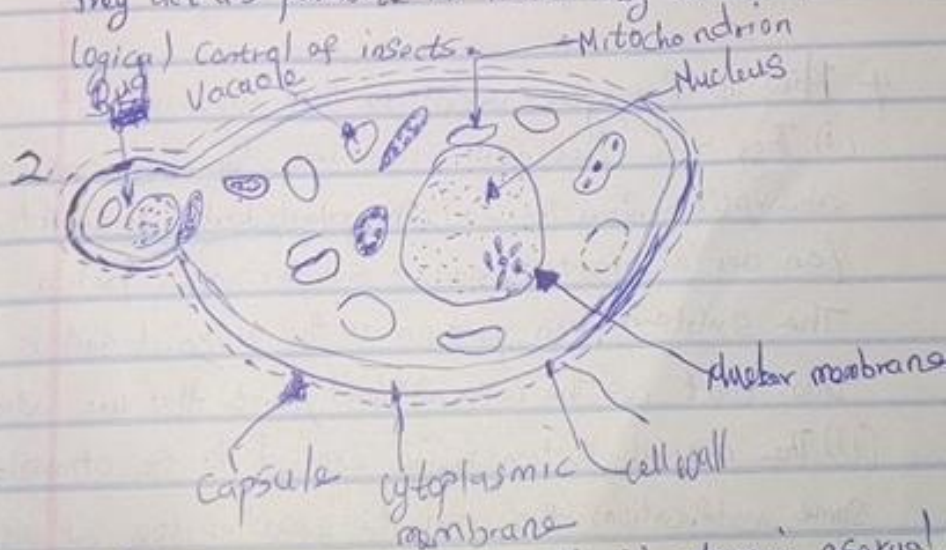 They act as
(logical) Control of insects.
Mitochondrion
Nucleus
Bug
Vacuole
2.
Nuclear membrane
Capsule
cytoplasmic
membrane
cell wall
asexual